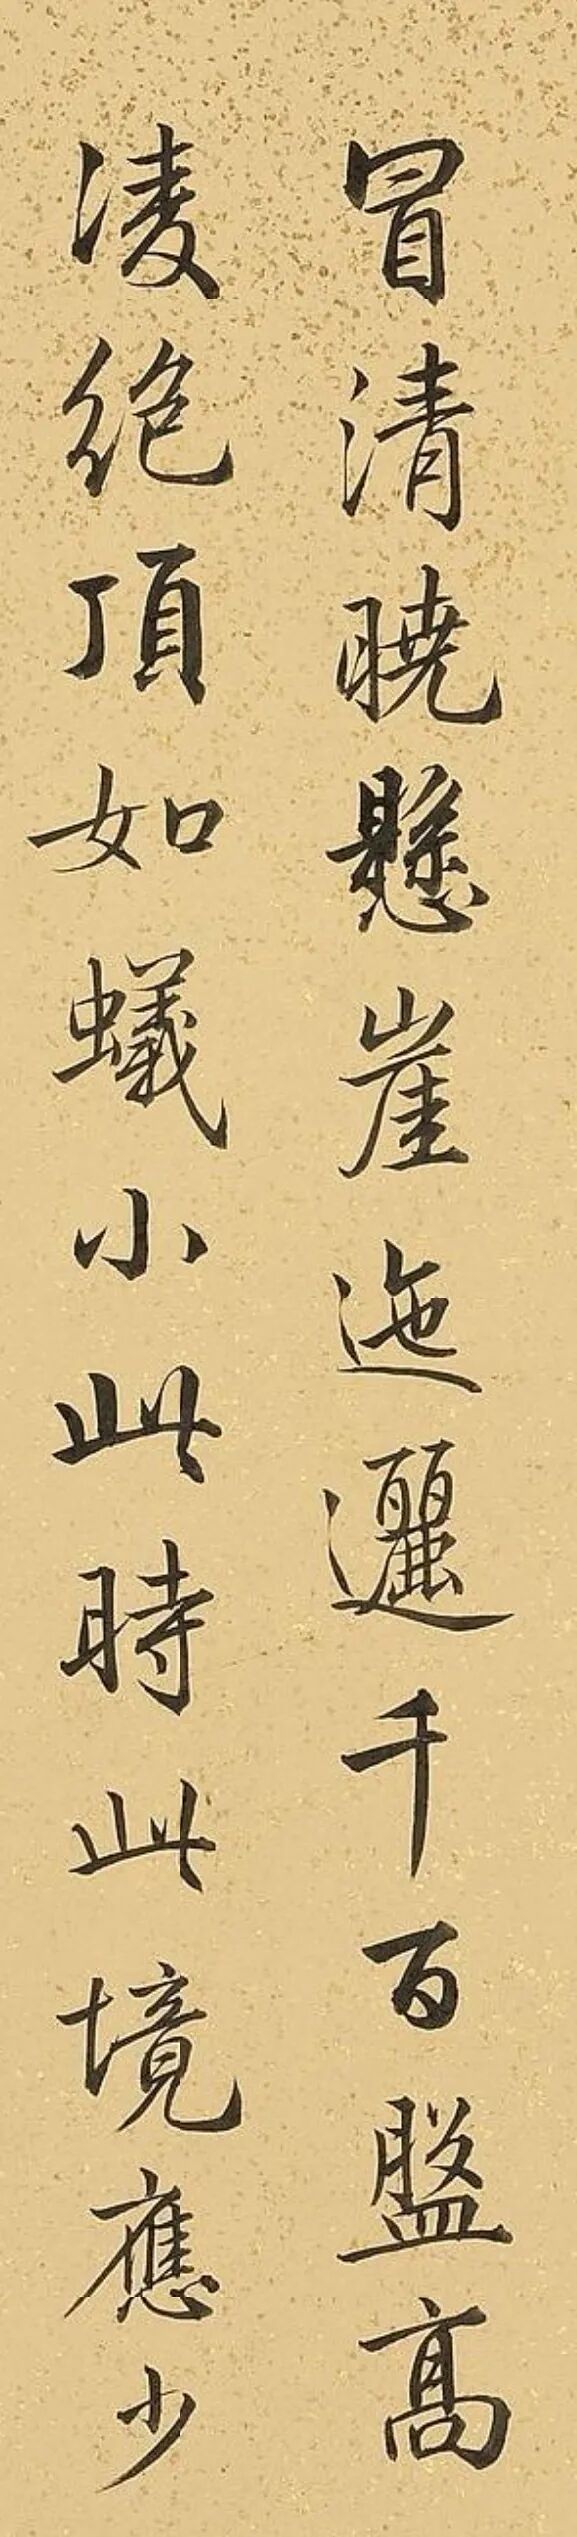 冒清曉懸崖迤邐千百盤高
凌絶頂如蟻小此時此境應少